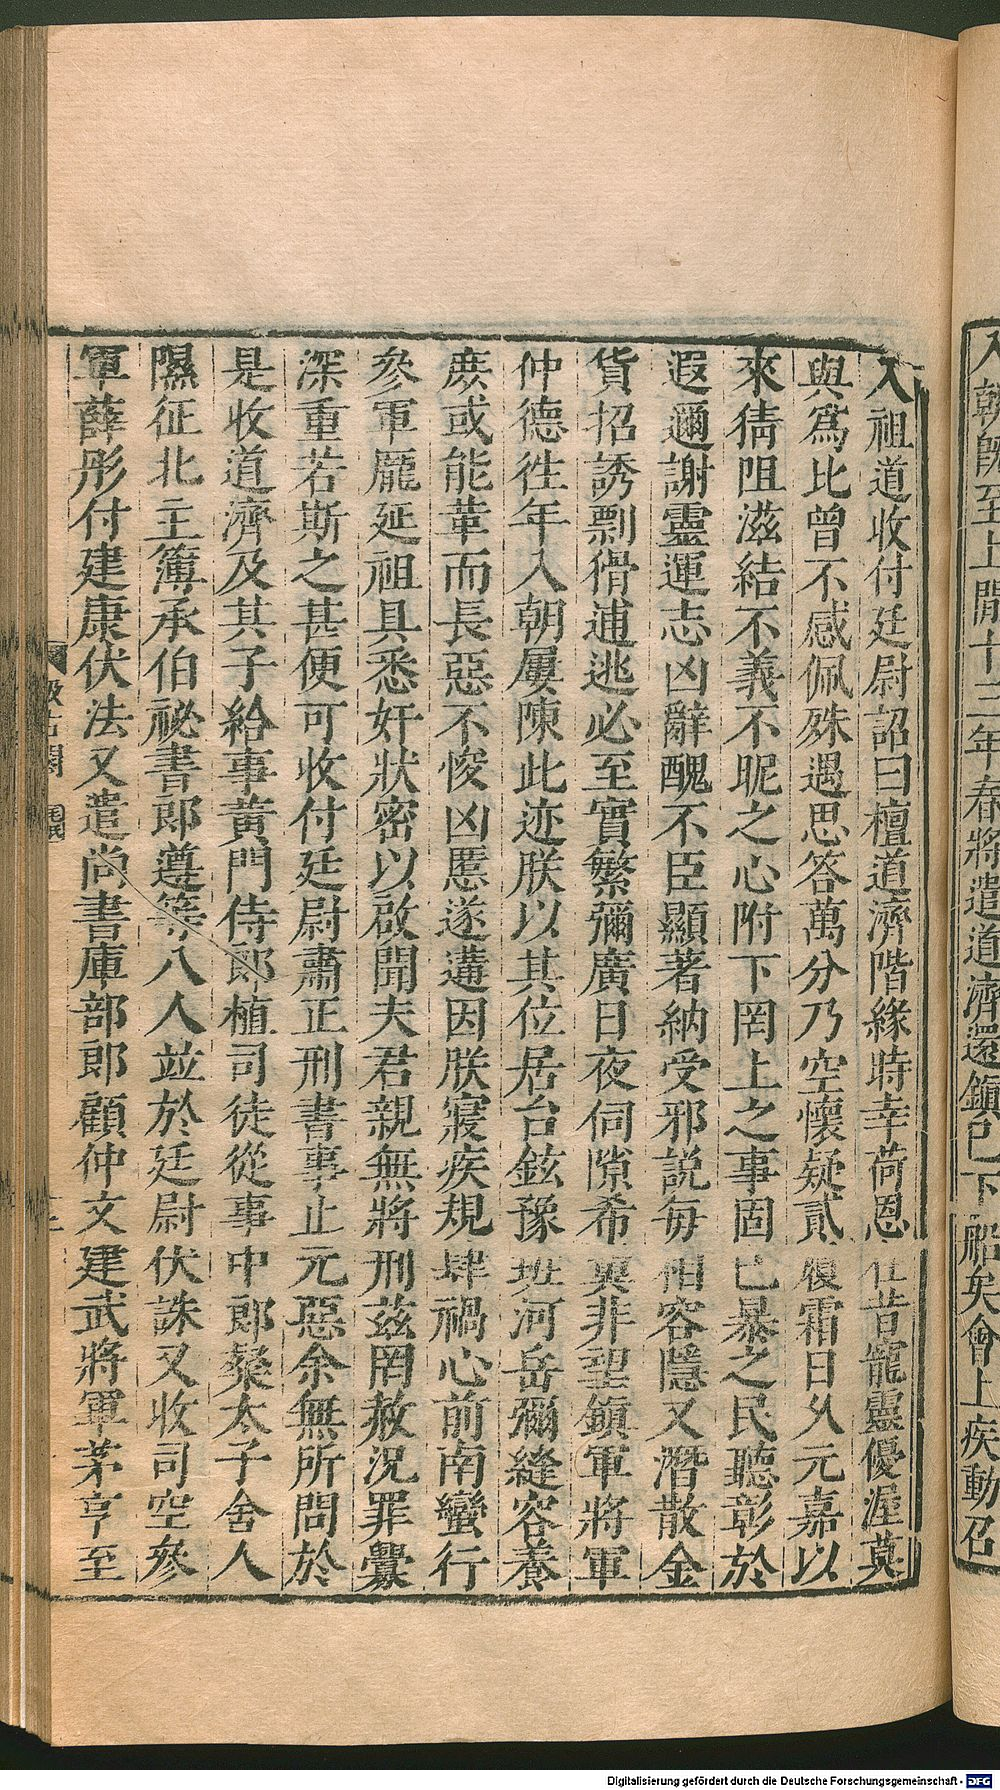 入朝既至上間十三年春將遣道濟還鎮已下船矣會上疾動召
入祖道收付廷尉詔曰檀道濟階緣時幸荷恩在昔寵靈優渥莫
與爲比曾不感佩殊遇思答萬分乃空懷疑貳履霜日久元嘉以
來猜阻滋結不義不昵之心附下罔上之事固已暴之民聽彰於
遐邇謝靈運志凶辭醜不臣顯著納受邪説每相容隱又潛散金
貨招誘剽猾逋逃必至實繁彌廣日夜伺隙希冀非望鎮軍將軍
仲德徃年入朝屢陳此迹朕以其位居台鉉豫班河岳彌縫容養
庶或能革而長惡不悛凶慝遂遘因朕寢疾規肆禍心前南蠻行
參軍龐延祖具悉奸狀密以啟聞夫君親無將刑茲罔赦況罪釁
深重若斯之甚便可收付廷尉肅正刑書事止元惡余無所問於
是收道濟及其子給事黄門侍郎植司徒從事中郎粲太子舍人
隰征北主簿承伯祕書郎遵等八人並於廷尉伏誅又收司空參
軍薛彤付建康伏法又遣尚書庫部郎顧仲文建武將軍茅亨至
汲古閣
毛氏
Digitalisierung gefördert durch die Deutsche Forschungsgemeinschaft - DFG